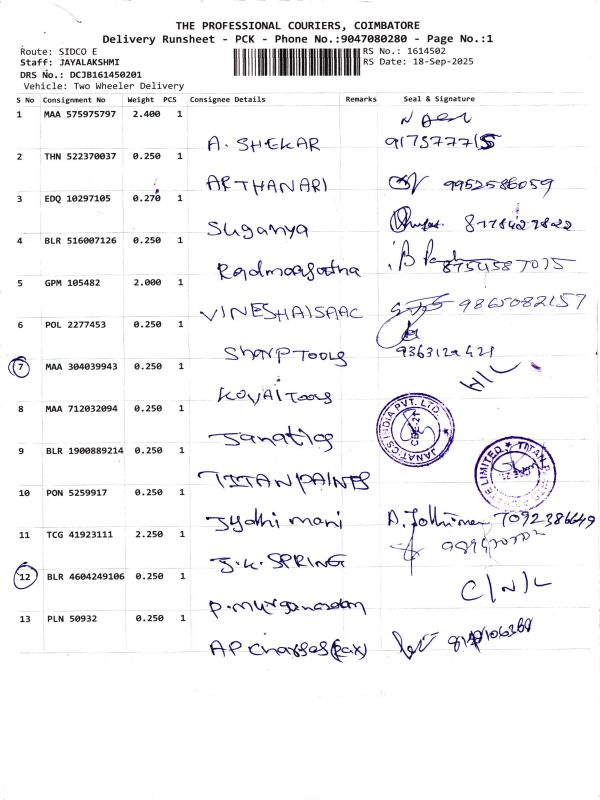 THE PROFESSIONAL COURIERS, COIMBATORE
Delivery Runsheet - PCK - Phone No.:9047080280 - Page No.:1
Route: SIDCO E RS No.: 1614502
Staff: JAYALAKSHMI RS Date: 18-Sep-2025
DRS No.: DCJB161450201
Vehicle: Two Wheeler Delivery
S No Consignment No Weight PCS Consignee Details Remarks Seal & Signature
1 MAA 575975797 2.400 1
A. SHEKAR
2 THN 522370037 0.250 1
ARTHANARI 9952586059
3 EDQ 10297105 0.270 1
Suganya
4 BLR 516007126 0.250 1
8754587075
5 GPM 105482 2.000 1
VINESHAISAAC 9865082157
6 POL 2277453 0.250 1
Sharp Tools
7 MAA 304039943 0.250 1
KOVAI Tools
8 MAA 712032094 0.250 1
Janatics
JANATICS INDIA PVT. LTD.
CBE-21
9 BLR 1900889214 0.250 1
TITAN PAINTS
10 PON 5259917 0.250 1
Jydhi mani 7092386649
11 TCG 41923111 2.250 1
J.K. SPRING
12 BLR 4604249106 0.250 1
C/N/L
13 PLN 50932 0.250 1